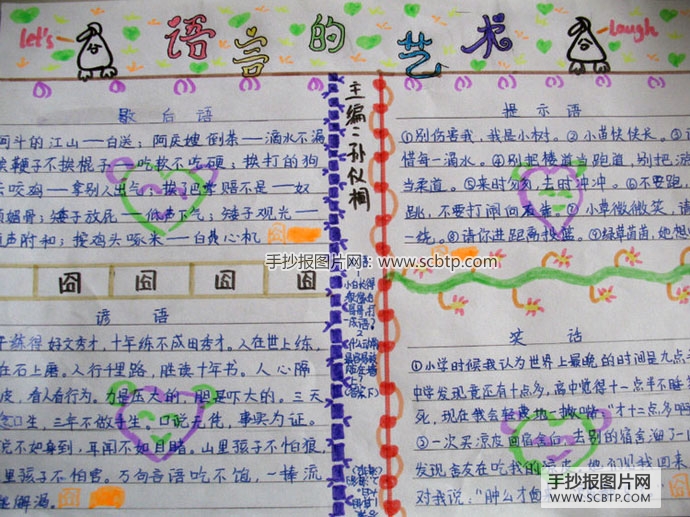 let's
语言的艺术
laugh
歇后语
阿斗的江山——白送；阿庆嫂倒茶——滴水不漏
挨鞭子不挨棍子——吃软不吃硬；挨打的狗
去咬鸡——拿别人出气；挨了巴掌赔不是——奴
颜媚骨；矮子放屁——低声下气；矮子观光——
随声附和；按鸡头啄米——白费心机
囧 囧 囧 囧
谚语
好文秀才，十年练不成田秀才。人在世上练，
在石上磨。人行千里路，胜读十年书。人心隔
皮，有人自有行为。力是压大的，胆是吓大的。三天
生，三年不做手生。口说无凭，事实为证。
不如身到，耳闻不如目睹。山里孩子不怕狼，
里孩子不怕官。万句言语吃不饱，一捧流
能解渴。
主编：孙似相
手抄报图片网：www.scbtp.com
提示语
①别伤害我，我是小树。②小草伏伏长。③
惜每一滴水。④别把楼道当跑道，别把
当柔道。⑤来时匆匆，去时冲冲。⑥不要跑，
跳，不要打闹。⑦小草微微笑，请
一绕。⑧请你进距离投篮。⑨绿草茵茵，她想
笑话
①小学时候我认为世界上最晚的时间是九点
中学发现竟还有十点多，高中觉得十一点半不睡
死，现在我会轻蔑地一撇嘴：“才十二点多啊
③一次买凉皮回宿舍后，去别的宿舍溜了一
发现舍友在吃我的凉皮，她们见我回来
对我说：“肿么才回
手抄报图片网
WWW.SCBTP.COM